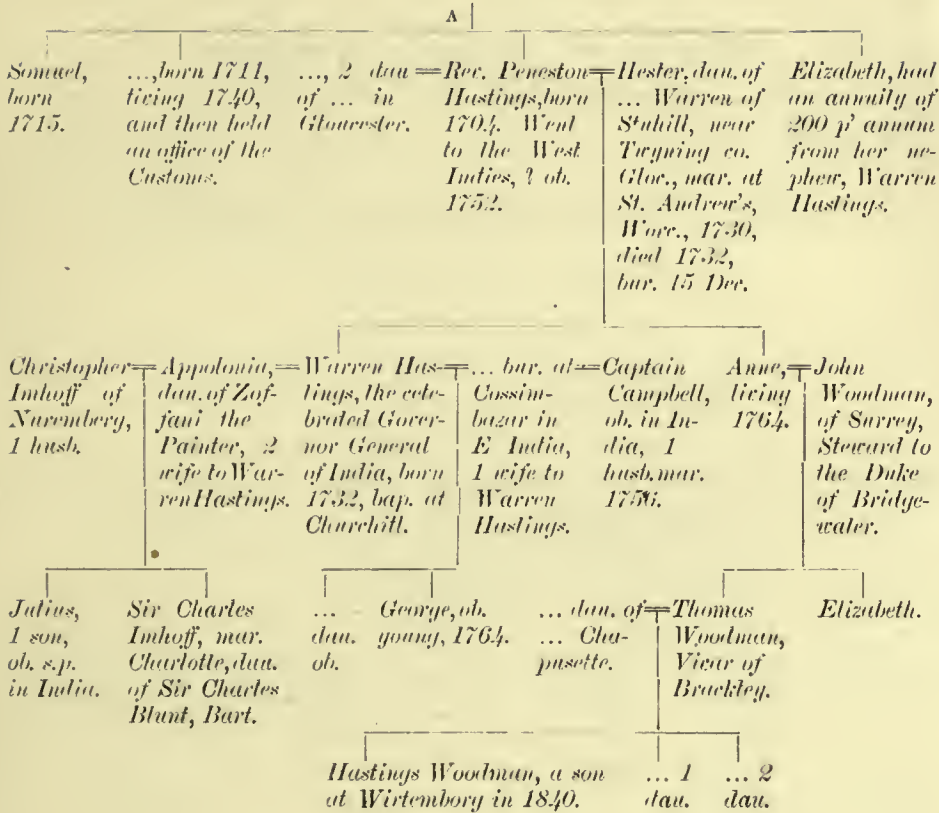 A
Samuel,
born
1715.
..., born 1711,
living 1740,
and then held
an office of the
Customs.
..., 2 dau
of ... in
Gloucester.
Rev. Peneston
Hastings, born
1704. Went
to the West
Indies, ? ob.
1752.
Hester, dau. of
... Warren of
Stuhill, near
Twyning co.
Gloc., mar. at
St. Andrew's,
Worc., 1730,
died 1732,
bur. 15 Dec.
Elizabeth, had
an annuity of
200 p' annum
from her ne-
phew, Warren
Hastings.
Christopher
Imhoff of
Nuremberg,
1 husb.
Appolonia,
dau. of Zof-
fani the
Painter, 2
wife to War-
ren Hastings.
Warren Has-
tings, the cele-
brated Gover-
nor General
of India, born
1732, bap. at
Churchill.
... bur. at
Cossim-
bazar in
E India,
1 wife to
Warren
Hastings.
Captain
Campbell,
ob. in In-
dia, 1
husb. mar.
1756.
Anne,
living
1764.
John
Woodman,
of Surrey,
Steward to
the Duke
of Bridge-
water.
Julius,
1 son,
ob. s.p.
in India.
Sir Charles
Imhoff, mar.
Charlotte, dau.
of Sir Charles
Blunt, Bart.
...
dau.
ob.
George, ob.
young, 1764.
... dau. of
... Cha-
pusette.
Thomas
Woodman,
Vicar of
Brackley.
Elizabeth.
Hastings Woodman, a son
at Wirtemborg in 1840.
... 1
dau.
... 2
dau.